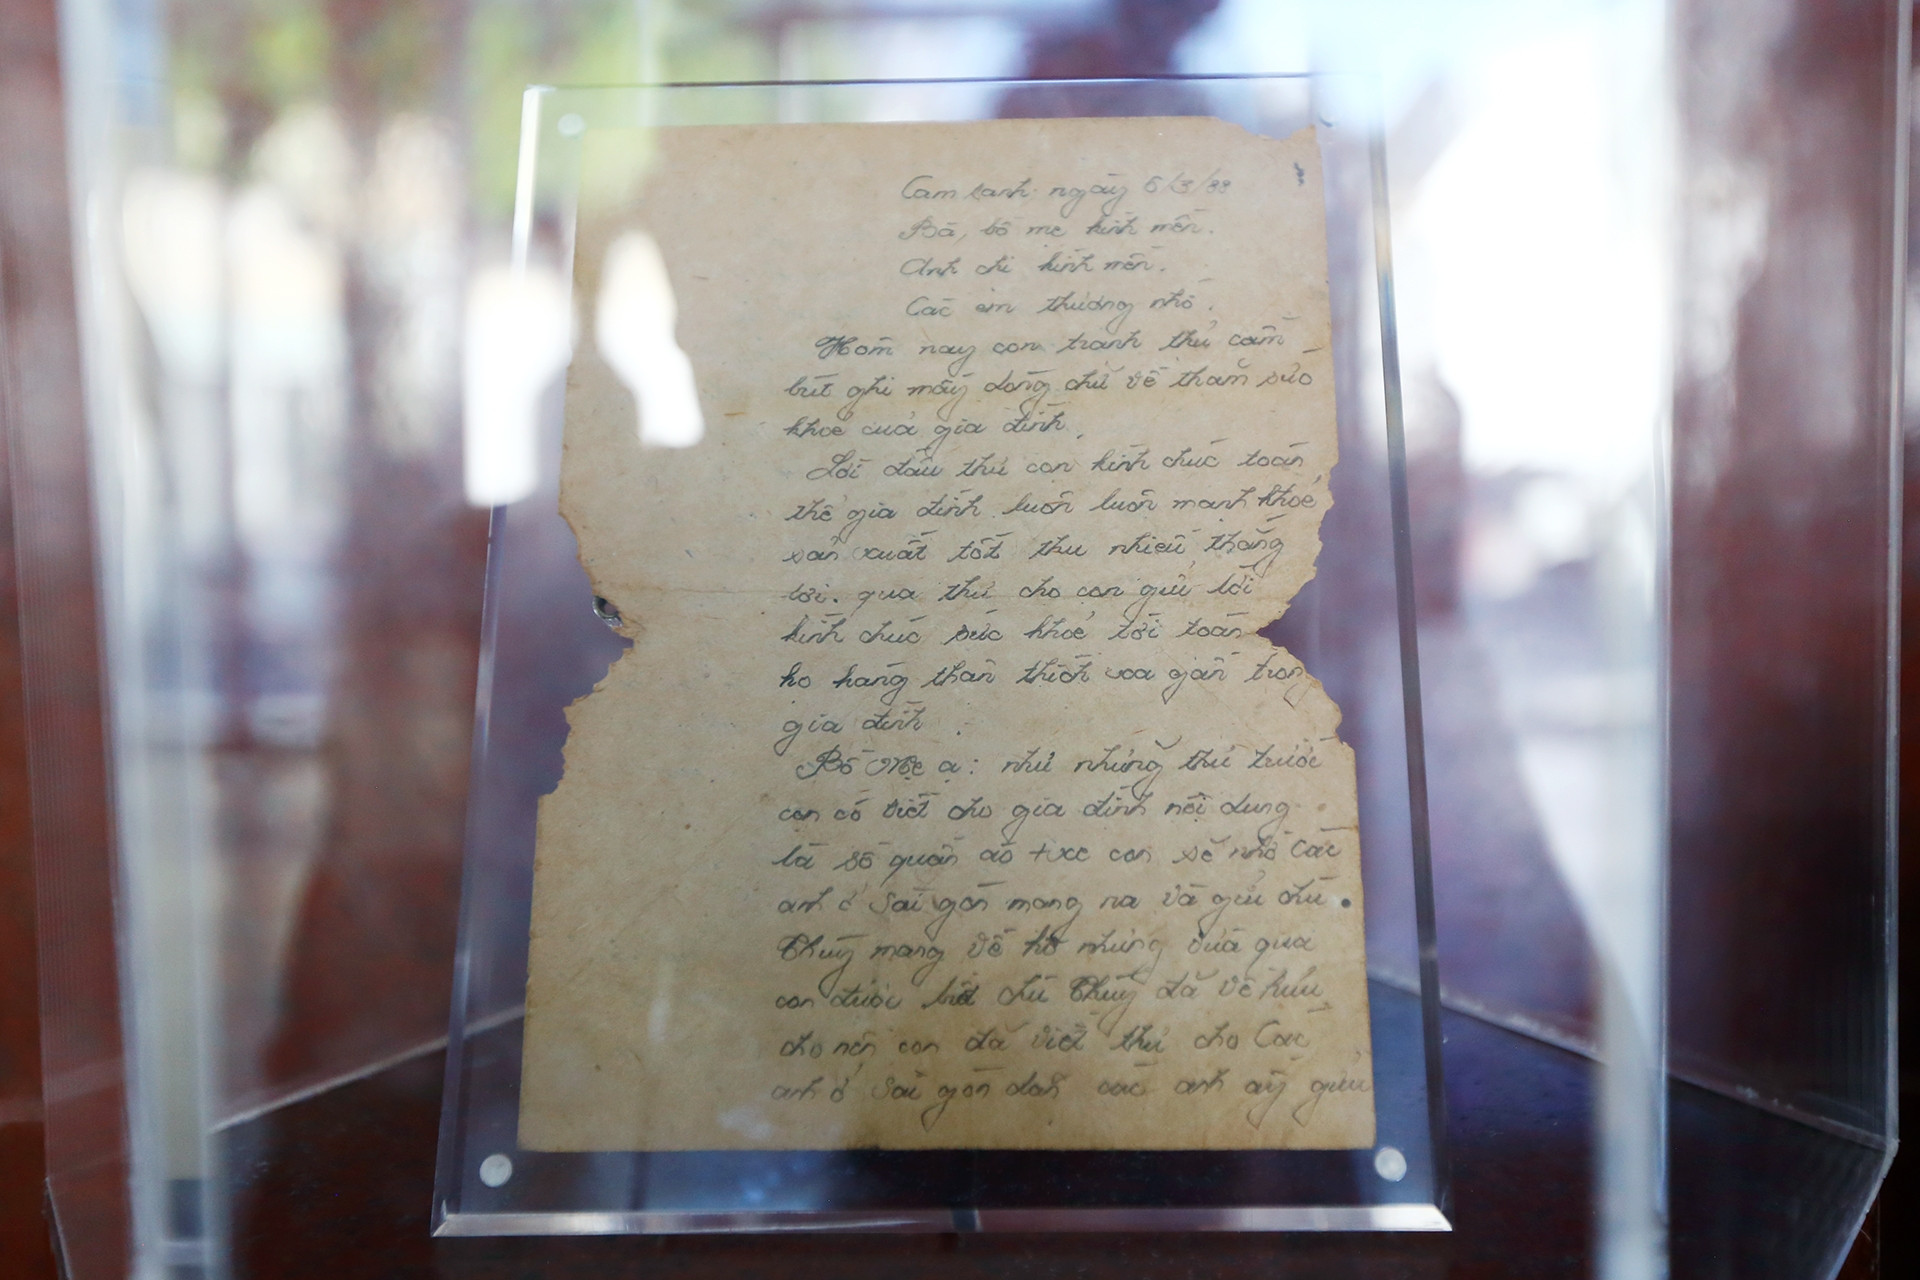 Cam ranh ngày 6/3/88
Bà, bố mẹ kính mến.
Anh chị kính mến.
Các em thương nhớ.
Hôm nay con tranh thủ cầm
bút ghi mấy dòng chữ về thăm sức
khoẻ của gia đình.
Lời đầu thư con kính chúc toàn
thể gia đình luôn luôn mạnh khoẻ
sản xuất tốt thu nhiều thắng
lợi. qua thư cho con gửi lời
kính chúc sức khoẻ tới toàn
họ hàng thân thích xa gần trong
gia đình.
Bố Mẹ ạ: như những thư trước
con có viết cho gia đình nội dung
là số quần áo + xe con sẽ nhờ Các
anh ở Sài gòn mang ra và gửi chú
Thuỷ mang về hộ nhưng vừa qua
con được biết chú Thuỷ đã về hưu
cho nên con đã viết thư cho Các
anh ở Sài gòn dặn các anh ấy gửi